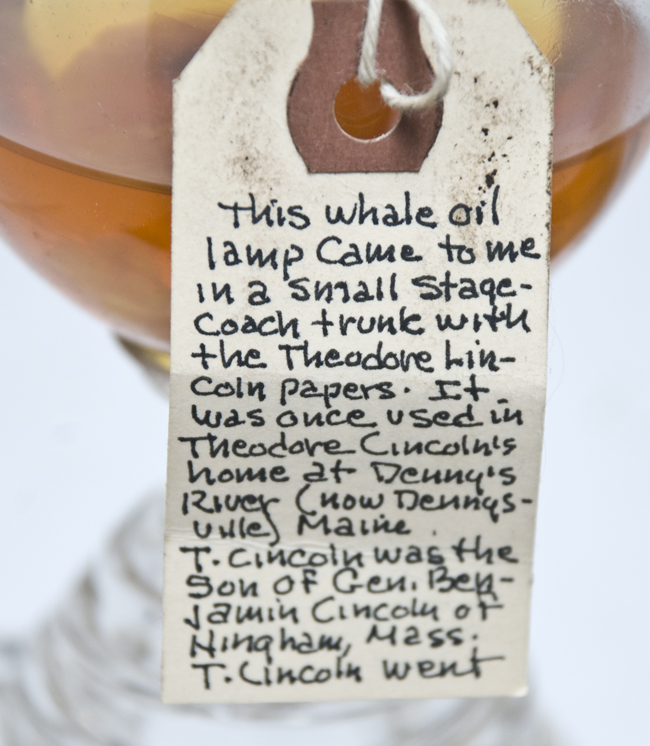 This whale oil
lamp Came to me
in a small stage-
Coach trunk with
the Theodore Lin-
coln papers. It
was once used in
Theodore Lincoln's
home at Denny's
River (now Dennys-
ville) Maine.
T. Lincoln was the
son of Gen. Ben-
jamin Lincoln of
Hingham, Mass.
T. Lincoln went